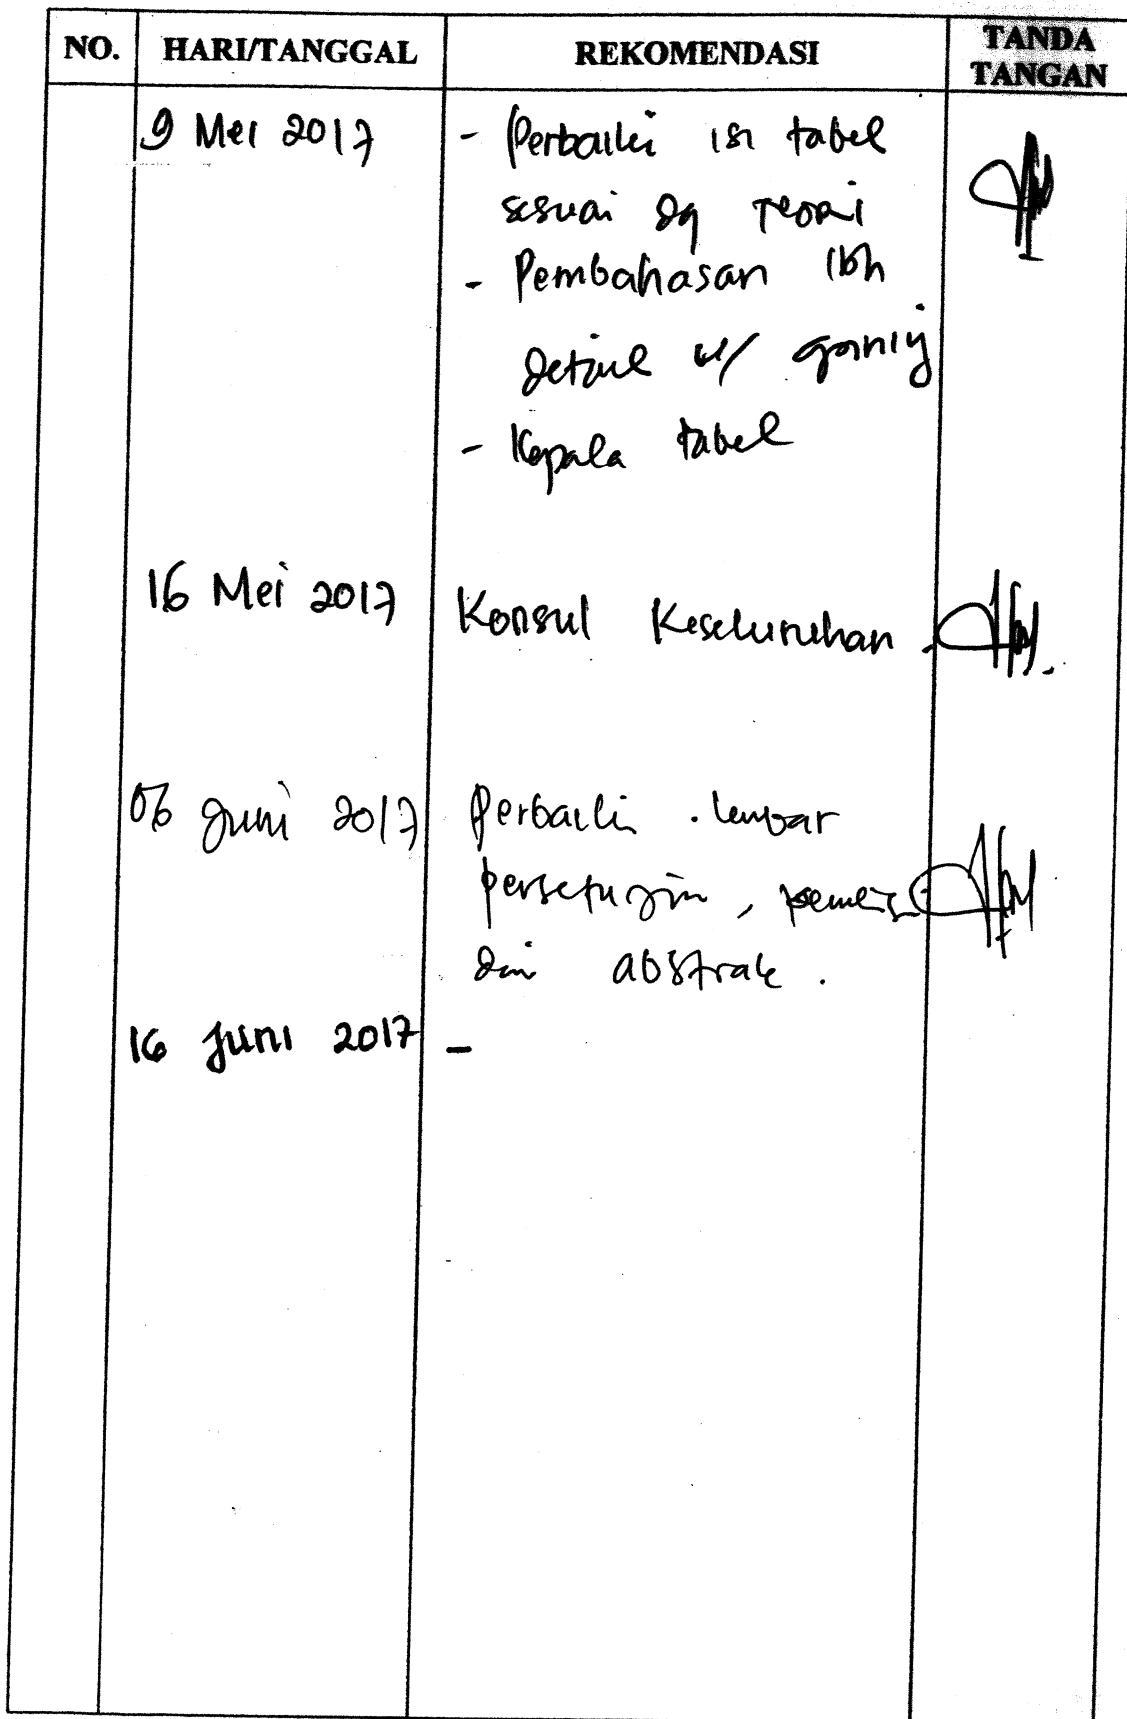 NO. HARI/TANGGAL REKOMENDASI TANDA TANGAN
9 Mei 2017 - Perbaiki isi tabel
sesuai dg teori
- Pembahasan lbh
detail u/
- Kepala tabel
16 Mei 2017 Konsul Keseluruhan
06 Juni 2017 Perbaiki lembar
persetujuan,
dan abstrak.
16 Juni 2017 -